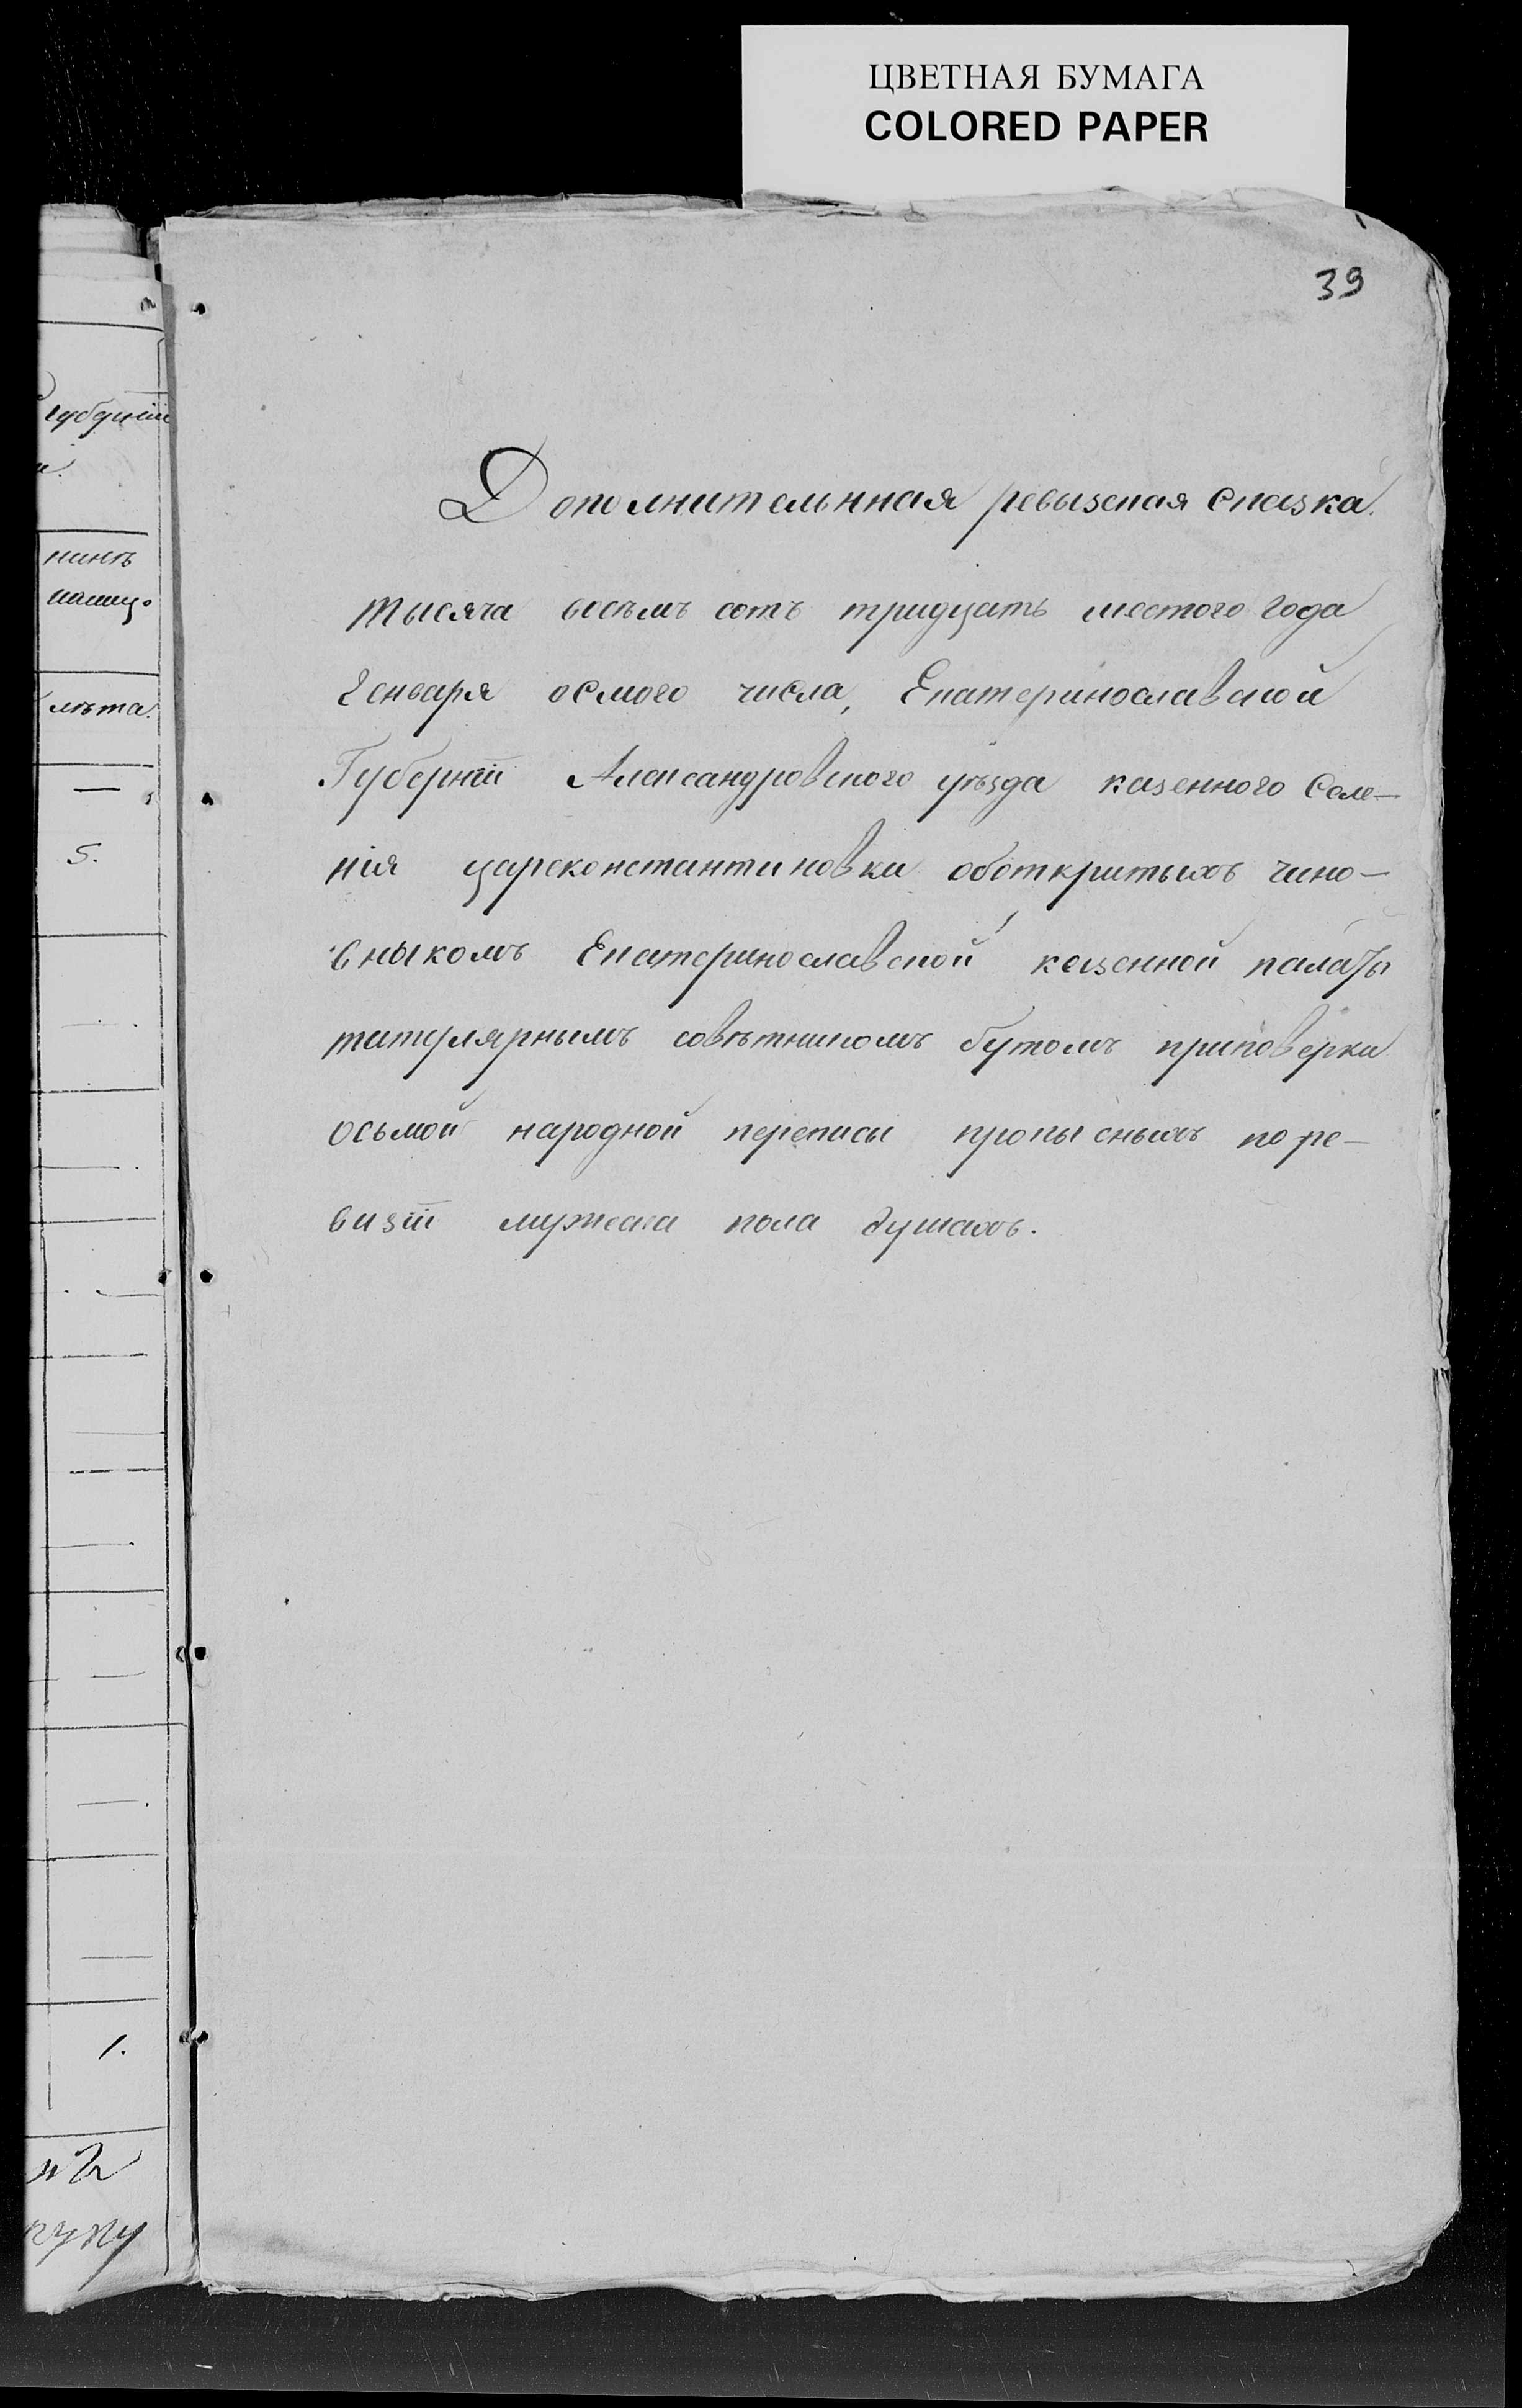 ЦВЕТНАЯ БУМАГА
COLORED PAPER
39
Дополнительнная ревызская сказка.
тысяча восъмъ сотъ тридцать шестого года
Генъваря осмого числа, Екатеринославской
Губерніи Александровского уѣзда казенного Селе-
нія цареконстантиновки оботкритыхъ чино-
вныкомъ Екатеринославской казенной палаты
титулярнымъ совѣтникомъ бутомъ приповерки
осьмой народной переписи пропысныхъ поре-
визіи мужеска пола душахъ.
губерніи
нинъ
лѣта.
5.
1.